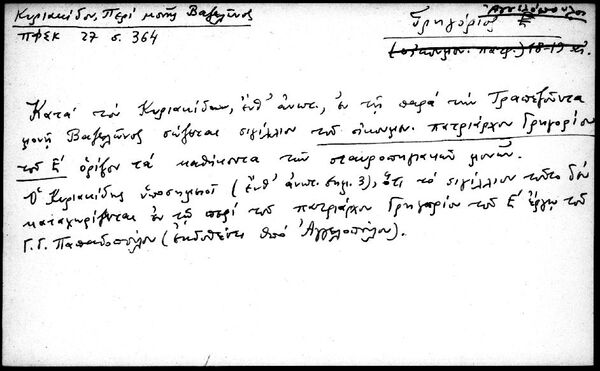 Κυριακίδου, Περί μονῆς Βαζελῶνος
ΠΦΣΚ 27 σ. 364
Ἀγγελόπουλος
Γρηγόριος Ε
(οἰκουμεν. πατρ.) 18-19 αἰ.
Κατά τόν Κυριακίδην, ἔνθ' ἀνωτ., ἐν τῇ παρά τήν Τραπεζοῦντα
μονῇ Βαζελῶνος σώζεται σιγίλλιον τοῦ οἰκουμεν. πατριάρχου Γρηγορίου
τοῦ Ε' ὁρίζον τά καθήκοντα τῶν σταυροπηγιακῶν μονῶν.
Ὁ Κυριακίδης ὑποσημειοῖ (ἔνθ' ἀνωτ. σημ. 3), ὅτι τό σιγίλλιον τοῦτο δέν
καταχωρίζεται ἐν τῷ περί τοῦ πατριάρχου Γρηγορίου τοῦ Ε' ἔργῳ τοῦ
Γ. Γ. Παπαδοπούλου (ἐκδοθέντι ὑπό Ἀγγελοπούλου).